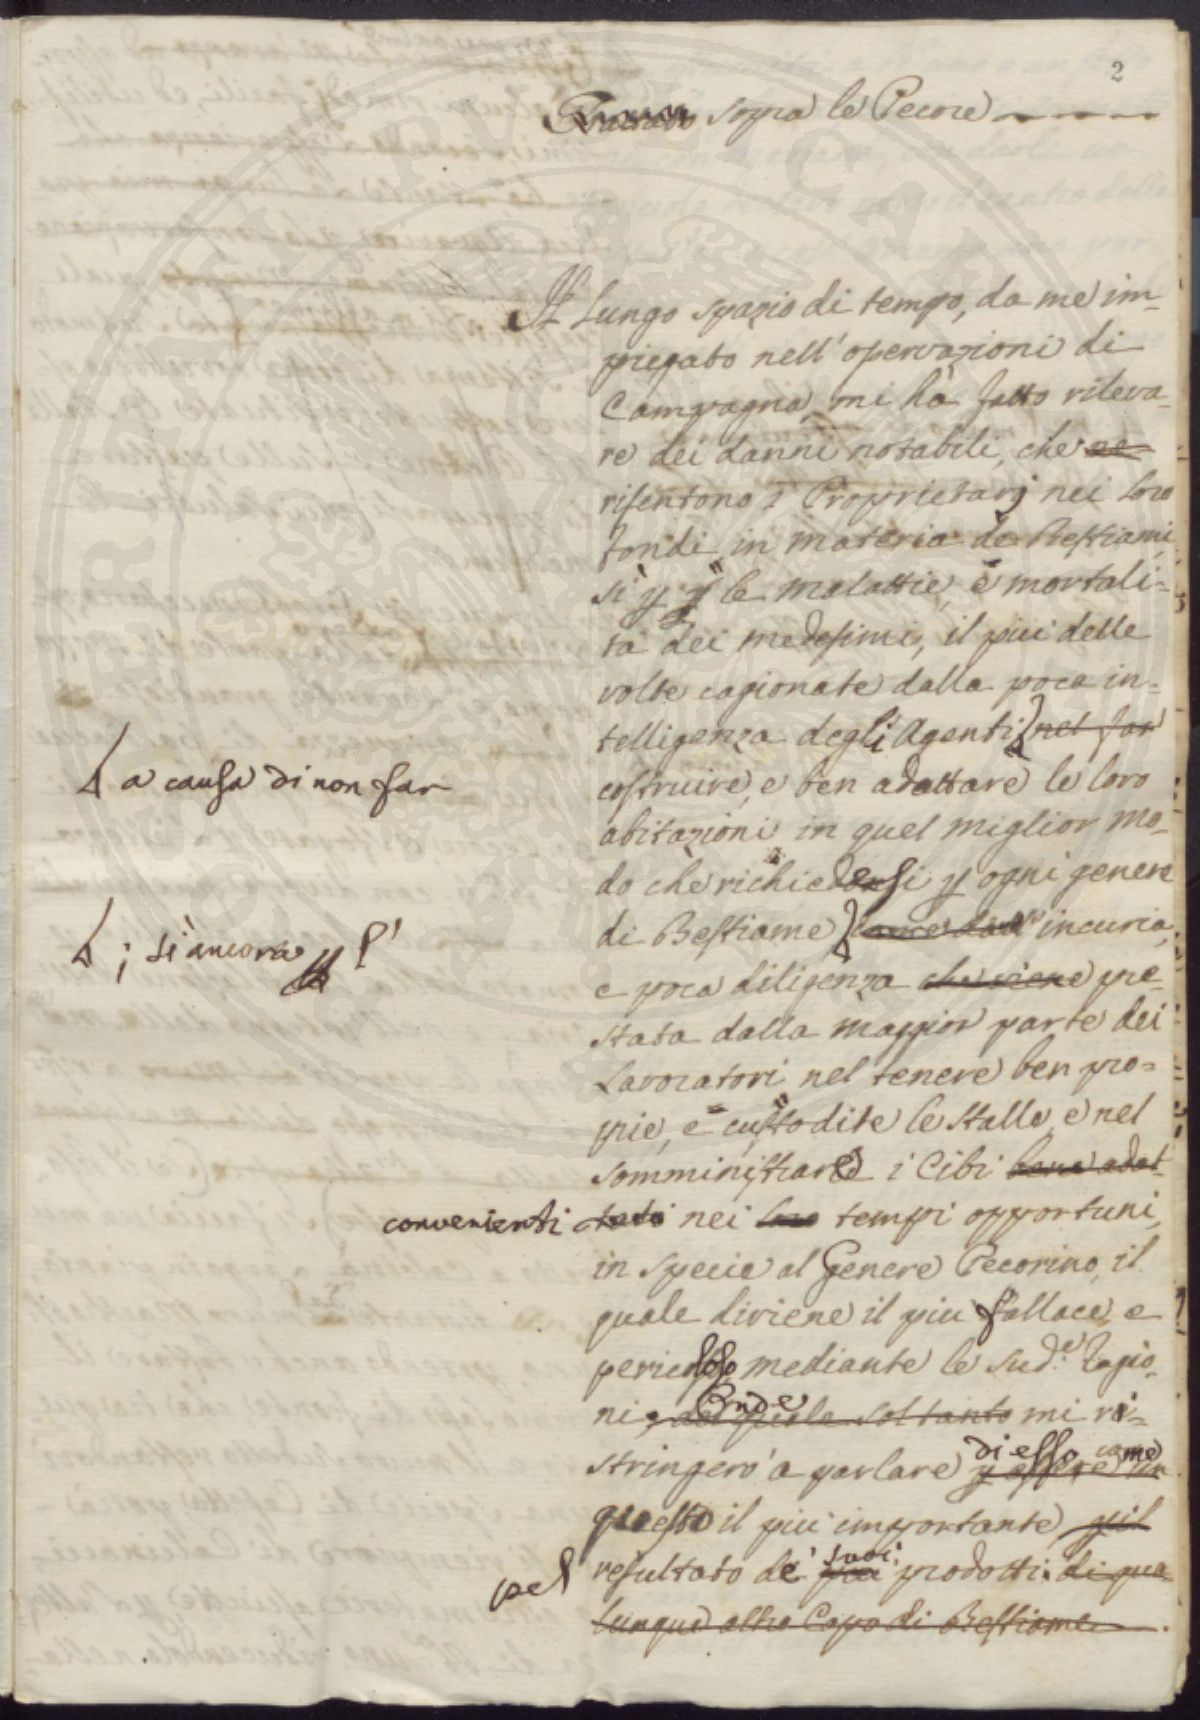 2
Trattato sopra le Pecore
Il Lungo spazio di tempo, da me im-
piegato nell'opervazioni di
Campagna, mi hà fatto rileva-
re dei danni notabili, che ne
risentono i Proprietarj nei loro
fondi in materia de Bestiami,
si p p le malattie, e mortali-
tà dei medesimi, il più delle
volte cagionate dalla poca in-
telligenza degli Agenti nel far
a causa di non far
costruire, e ben adattare le loro
abitazioni in quel miglior mo-
do che richiedersi p ogni genere
di Bestiame, incuria,
; sì ancora p l'
e poca diligenza che viene pre-
stata dalla maggior parte dei
Lavoratori nel tenere ben pro-
prie, e custodite le stalle, e nel
somministrare i Cibi bene adat-
convenienti tati nei loro tempi opportuni,
in specie al Genere Pecorino, il
quale diviene il più fallace, e
pericoloso mediante le sud.e Ragio-
ni, Onde soltanto mi ri-
stringerò a parlare di esso come
p essere
questo il più importante pil
pel resultato de' suoi prodotti: di qua-
lunque altro Capo di Bestiame.